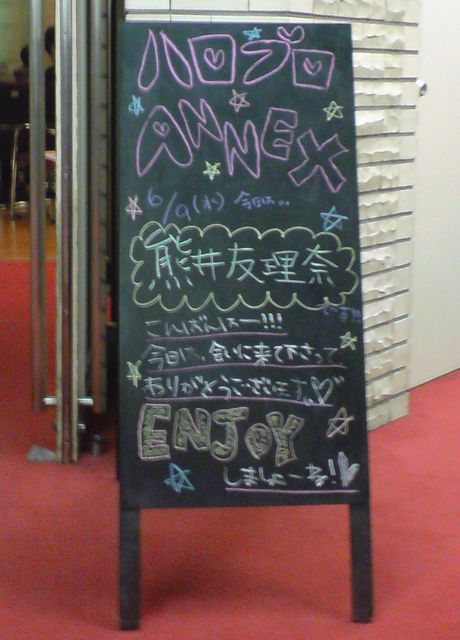 ハロプロ
ANNEX
6/9(水) 今日は...
熊井友理奈
ですね
こんばんはー!!!
今日は、会いに来て下さって
ありがとうございます。♡
ENJOY
しましょーね!♡